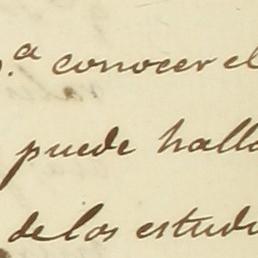 p.ª conocer el
puede halla
de los estud